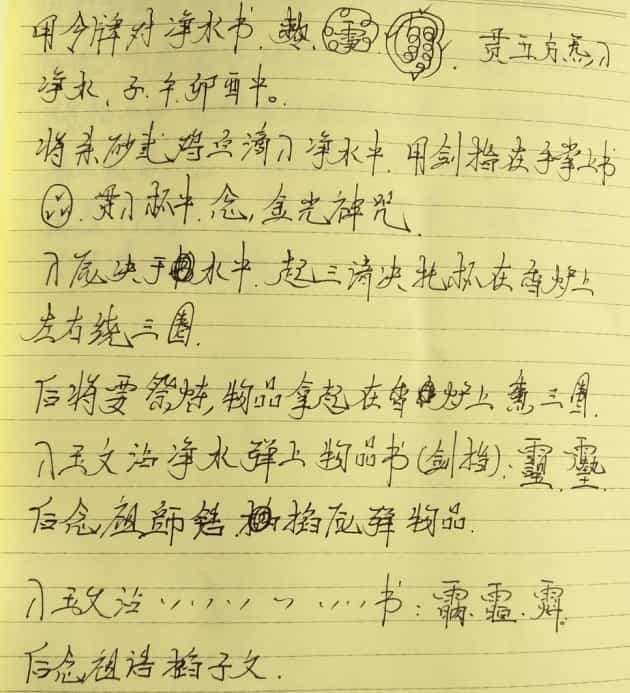 用令牌对净水书、敕、、贯五方炁入
净水、子、午、卯、酉中。
将朱砂 鸡血滴入净水中、用剑指在手掌上书
、贯入杯中、念、金光神咒
入 决于水中、起三清决托杯在香炉上
左右绕三圈.
后将要祭炼,物品拿起在香炉上熏三圈.
入玉文沾净水弹上物品书(剑指):
后念祖师 掐 弹物品.
入玉文沾、、、、、、、、、、书:
后念祖 掐子文.